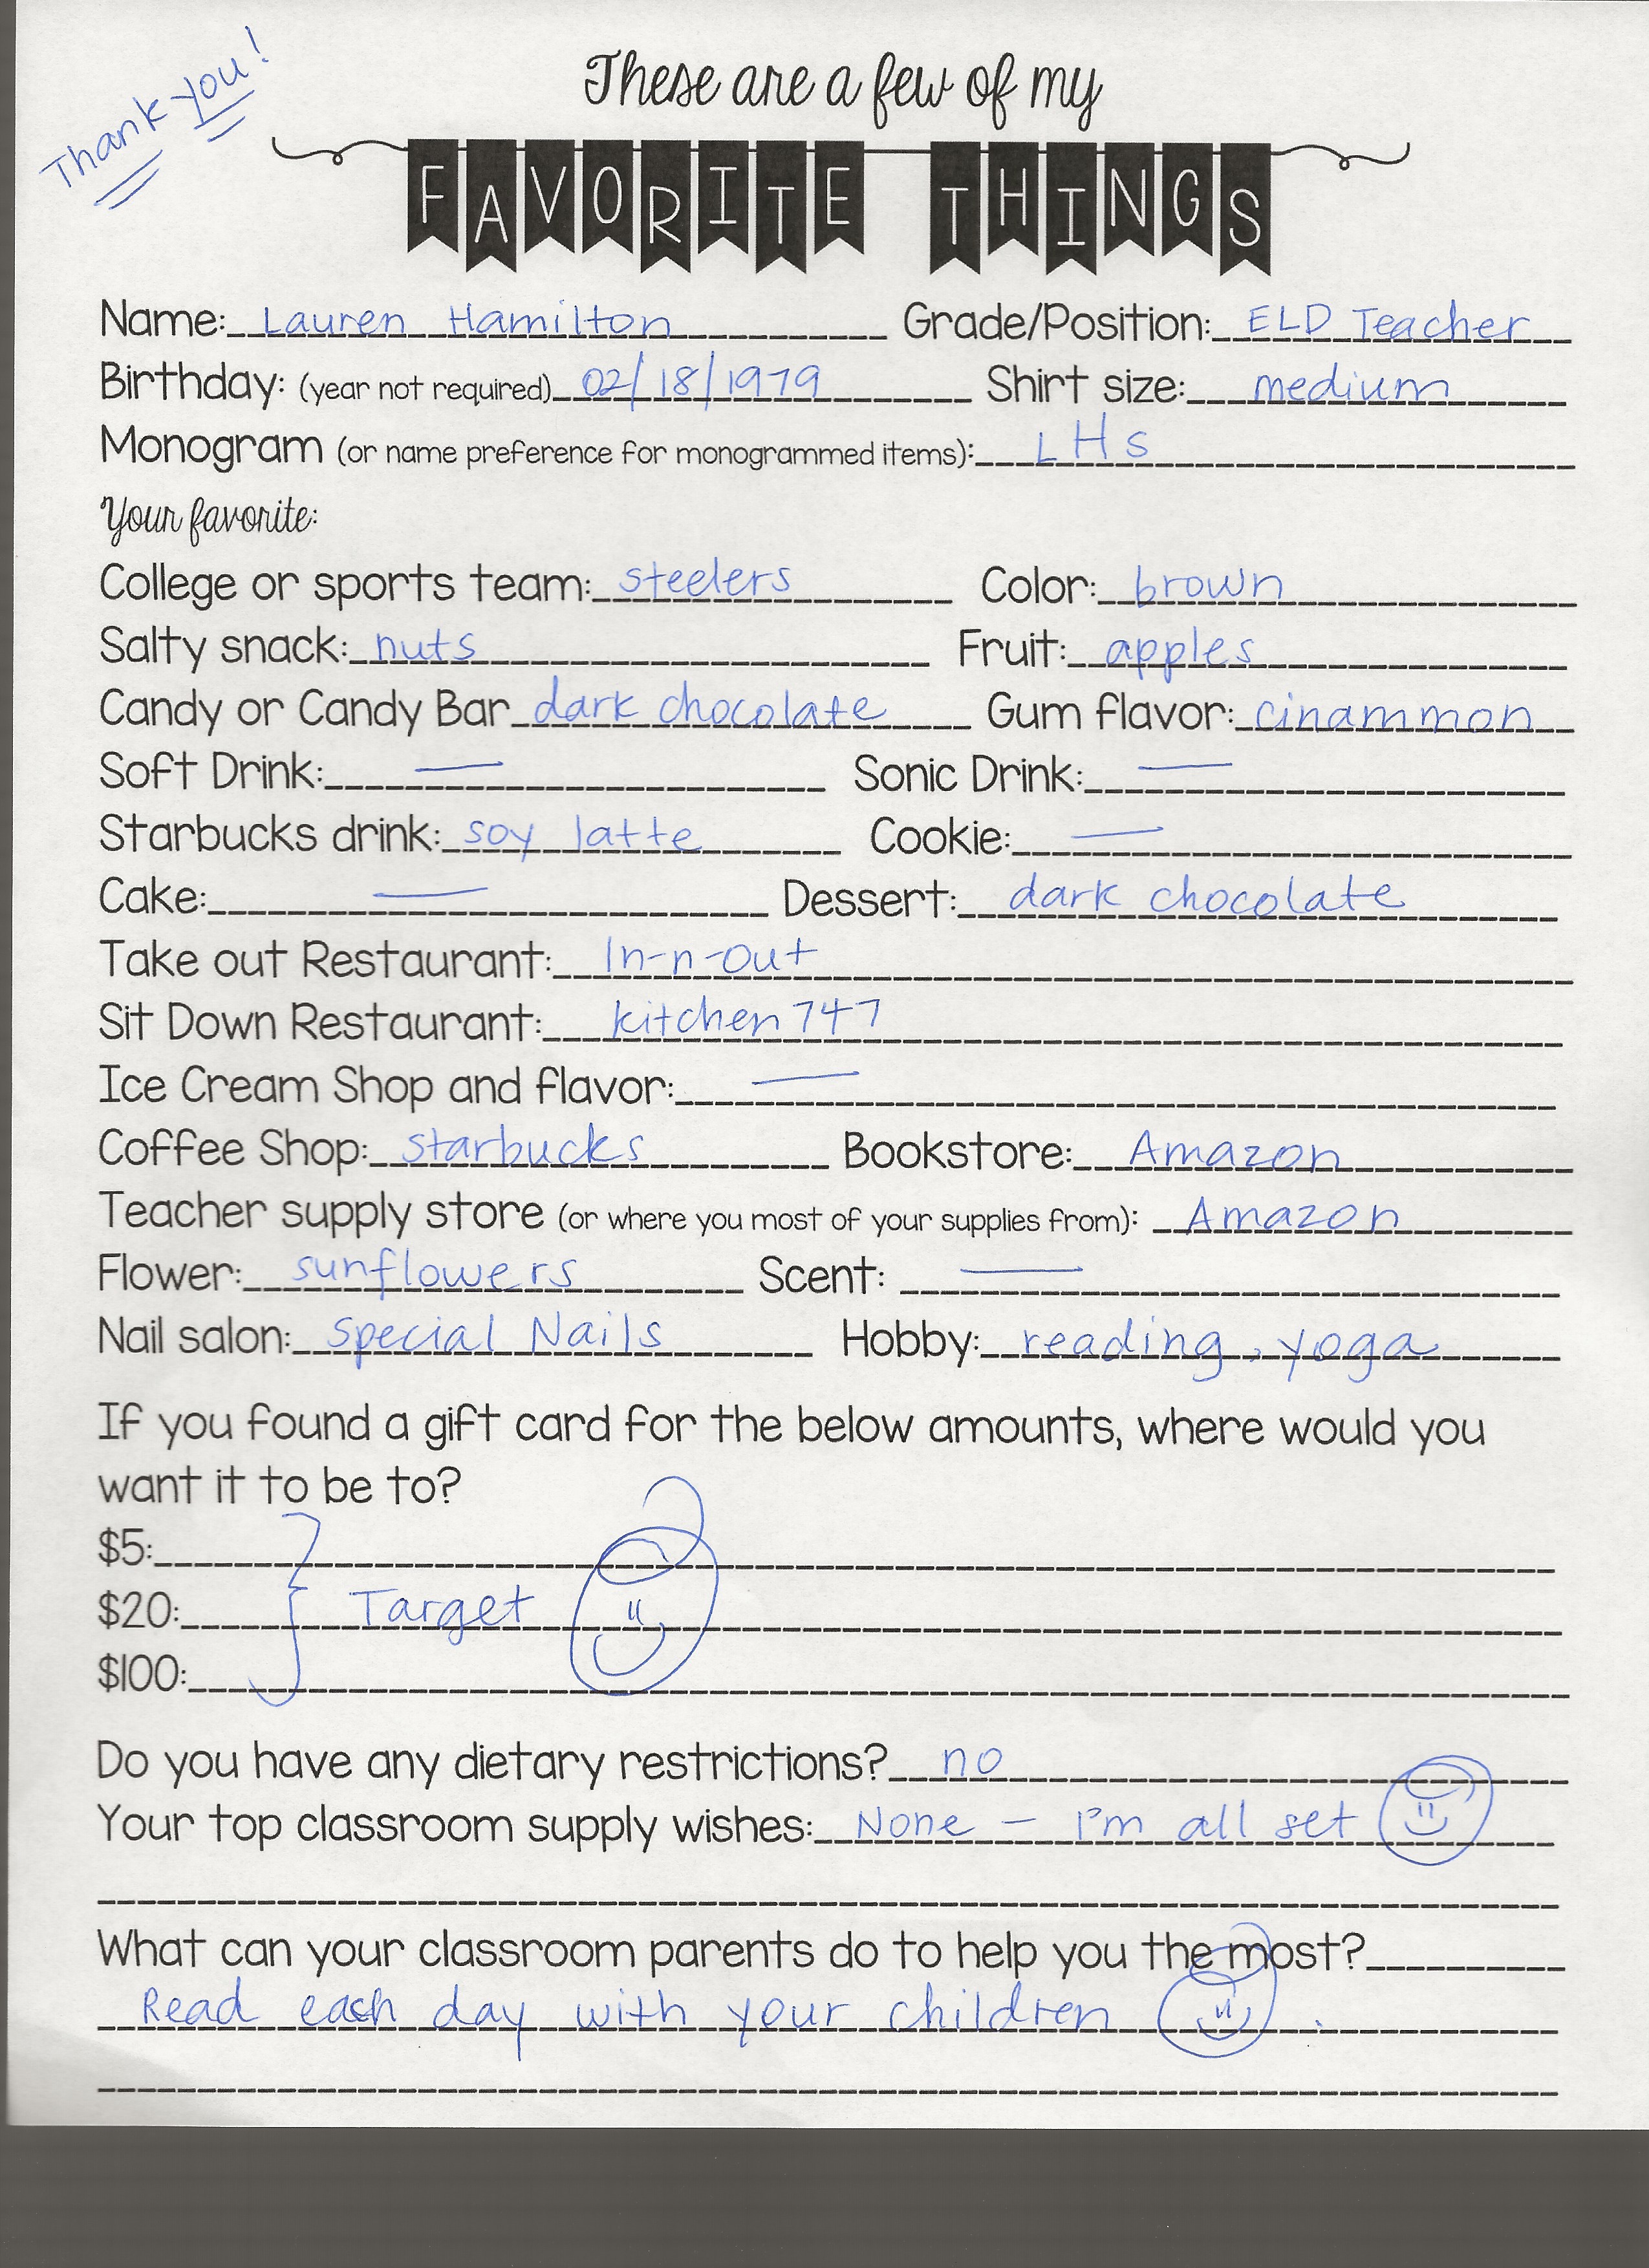 Thank you!
These are a few of my
FAVORITE THINGS
Name: Lauren Hamilton Grade/Position: ELD Teacher
Birthday: (year not required) 02/18/1979 Shirt size: medium
Monogram (or name preference for monogrammed items): LHs
Your favorite:
College or sports team: steelers Color: brown
Salty snack: nuts Fruit: apples
Candy or Candy Bar dark chocolate Gum flavor: cinammon
Soft Drink: — Sonic Drink: —
Starbucks drink: soy latte Cookie: —
Cake: — Dessert: dark chocolate
Take out Restaurant: In-n-Out
Sit Down Restaurant: kitchen 747
Ice Cream Shop and flavor: —
Coffee Shop: starbucks Bookstore: Amazon
Teacher supply store (or where you most of your supplies from): Amazon
Flower: sunflowers Scent: —
Nail salon: Special Nails Hobby: reading, yoga
If you found a gift card for the below amounts, where would you
want it to be to?
$5:
$20: Target
$100:
Do you have any dietary restrictions? no
Your top classroom supply wishes: None — I'm all set
What can your classroom parents do to help you the most?
Read each day with your children .